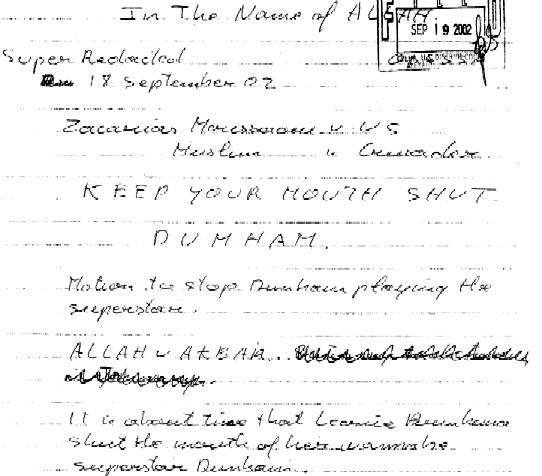 In The Name of ALLAH
SEP 19 2002
Super Redacted
18 September 02
Zacarias Moussaoui v US
Muslim v Crusader
KEEP YOUR MOUTH SHUT
DUMHAM.
Motion to stop Dunham playing the
superstar.
ALLAH U AKBAR.
It is about time that Leonie Brinkema
shut the mouth of her wannabe
superstar Dunham.